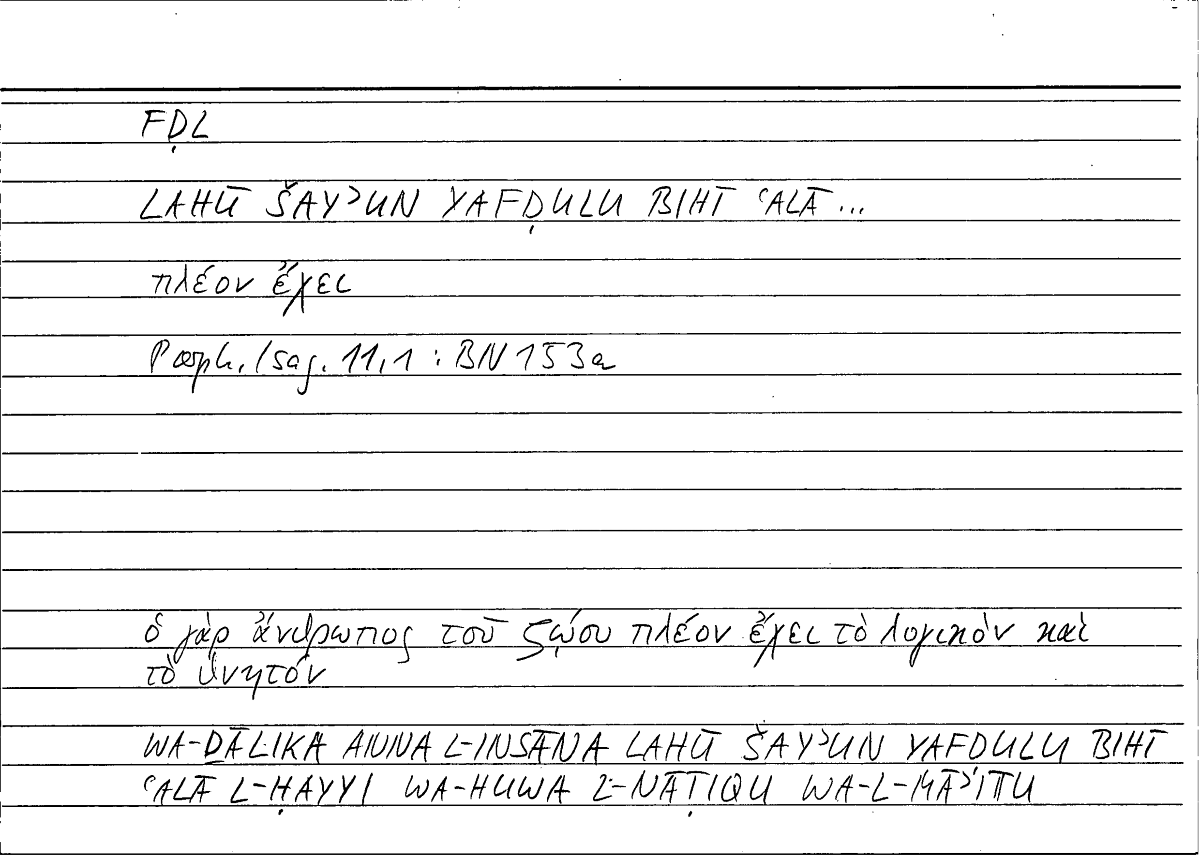 FḌL
LAHŪ ŠAYʾUN YAFḌULU BIHĪ ʿALĀ...
πλέον ἔχει
Porph. Isag. 11,1 : BN 153a
ὁ γὰρ ἄνθρωπος τοῦ ζῴου πλέον ἔχει τὸ λογικὸν καὶ
τὸ θνητόν
WA-ḎĀLIKA ANNA L-INSĀNA LAHŪ ŠAYʾUN YAFDULU BIHĪ
ʿALĀ L-ḤAYYI WA-HUWA L-NĀṬIQU WA-L-MĀʾITU